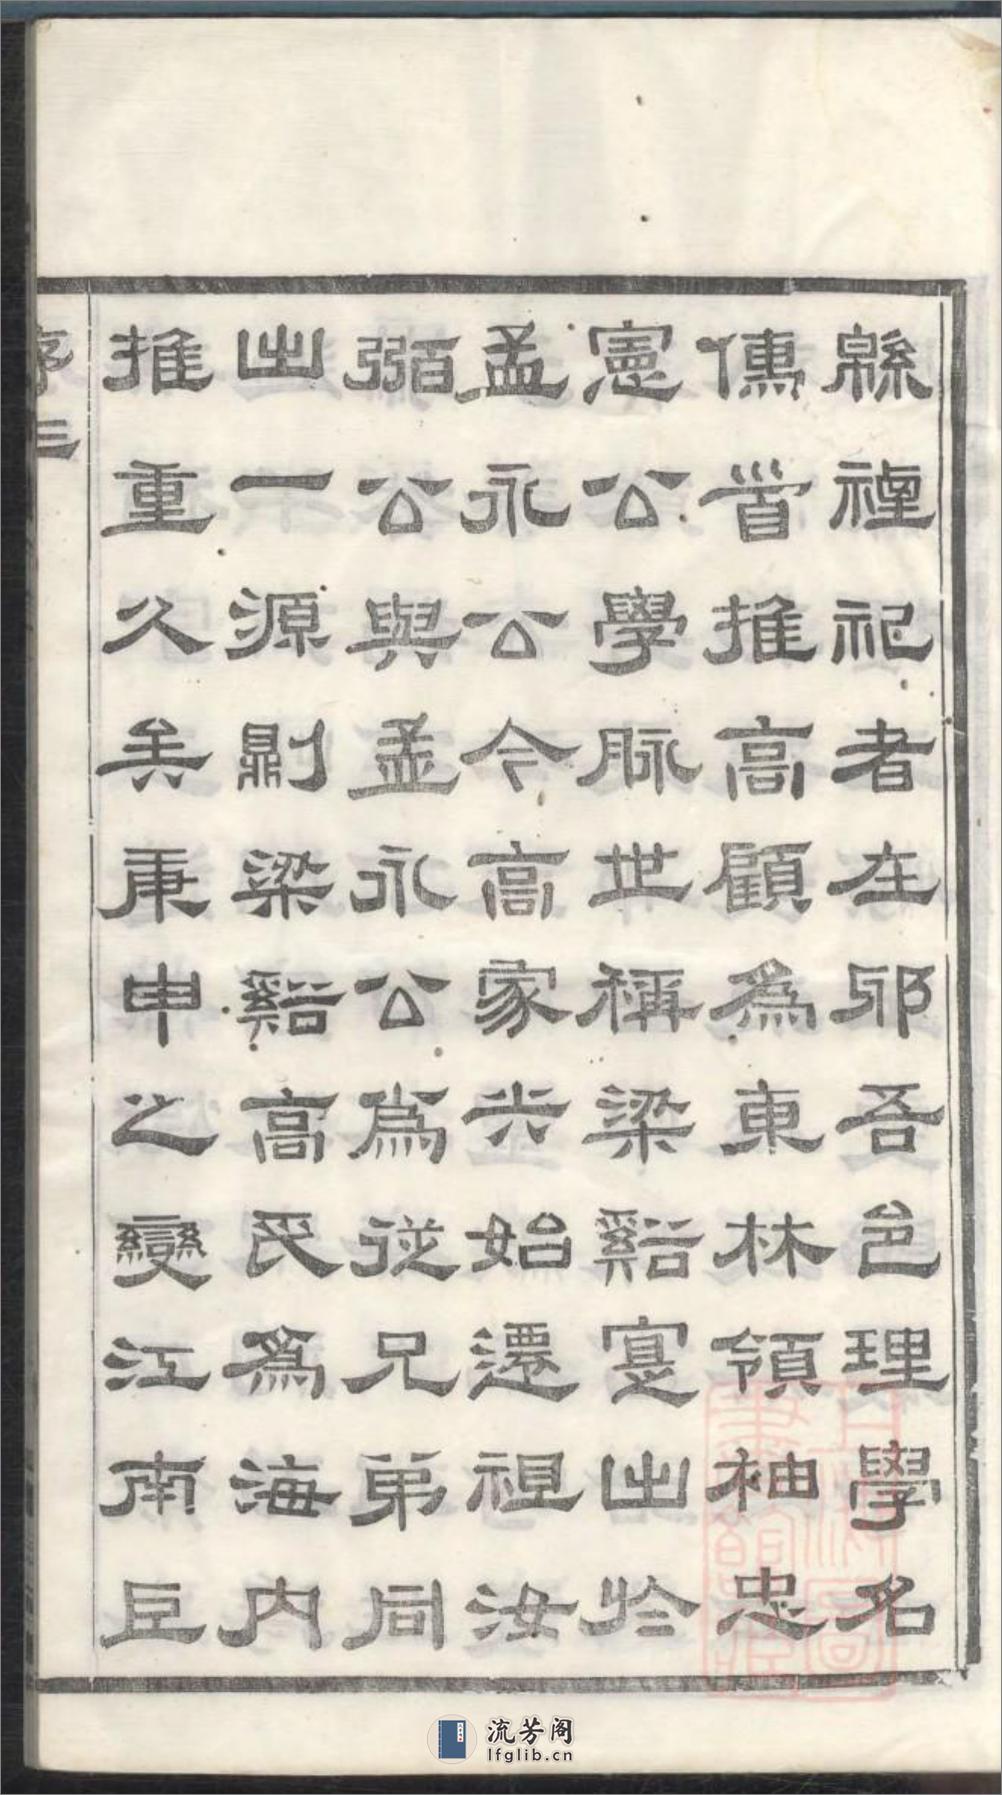 緜禋祀者在邪吾邑理學名
儒首推高顧為東林領袖忠
憲公學脈世稱梁谿寔出於
孟永公今高家六始遷祖汝
弼公與孟永公為從兄弟同
出一源則梁谿高氏為海內
推重久矣庚申之變江南臣
序 三
上海圖書館藏
流芳阁
lfglib.cn